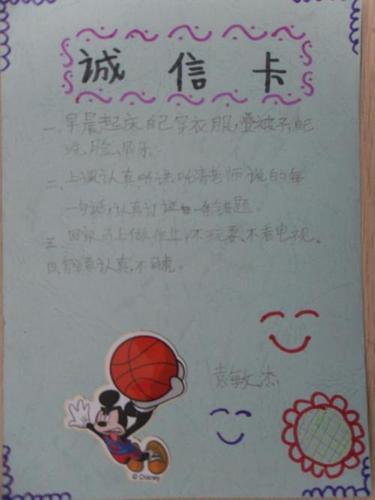 诚信卡
一、早晨起床自己穿衣服,叠被子,
洗脸,
二、上课认真听讲,听清老师说的每
一句话,认真订正每一条错题。
三、回家马上做作业,不玩耍、不看电视。
四、认真,不
袁敏杰
© Disney